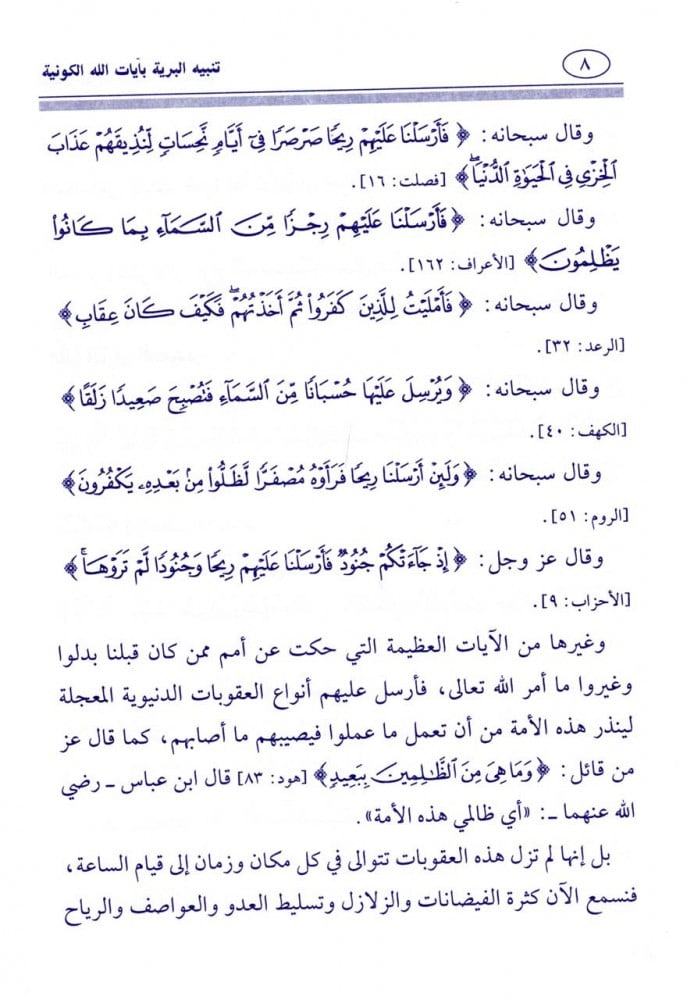 ٨
تنبيه البرية بآيات الله الكونية
وقال سبحانه: ﴿فَأَرْسَلْنَا عَلَيْهِمْ رِيحًا صَرْصَرًا فِىٓ أَيَّامٍ نَّحِسَاتٍ لِّنُذِيقَهُمْ عَذَابَ
الْخِزْيِ فِي الْحَيَوٰةِ الدُّنْيَا ۖ﴾ [فصلت: ١٦].
وقال سبحانه: ﴿فَأَرْسَلْنَا عَلَيْهِمْ رِجْزًا مِّنَ السَّمَآءِ بِمَا كَانُوا۟
يَظْلِمُونَ﴾ [الأعراف: ١٦٢].
وقال سبحانه: ﴿فَأَمْلَيْتُ لِلَّذِينَ كَفَرُوا۟ ثُمَّ أَخَذْتُهُمْ ۖ فَكَيْفَ كَانَ عِقَابِ﴾
[الرعد: ٣٢].
وقال سبحانه: ﴿وَيُرْسِلَ عَلَيْهَا حُسْبَانًا مِّنَ السَّمَآءِ فَتُصْبِحَ صَعِيدًا زَلَقًا﴾
[الكهف: ٤٠].
وقال سبحانه: ﴿وَلَئِنْ أَرْسَلْنَا رِيحًا فَرَأَوْهُ مُصْفَرًّا لَّظَلُّوا۟ مِنۢ بَعْدِهِۦ يَكْفُرُونَ﴾
[الروم: ٥١].
وقال عز وجل: ﴿إِذْ جَآءَتْكُمْ جُنُودٌ فَأَرْسَلْنَا عَلَيْهِمْ رِيحًا وَجُنُودًا لَّمْ تَرَوْهَا ۚ﴾
[الأحزاب: ٩].
وغيرها من الآيات العظيمة التي حكت عن أمم ممن كان قبلنا بدلوا
وغيروا ما أمر الله تعالى، فأرسل عليهم أنواع العقوبات الدنيوية المعجلة
لينذر هذه الأمة من أن تعمل ما عملوا فيصيبهم ما أصابهم، كما قال عز
من قائل: ﴿وَمَا هِىَ مِنَ الظَّٰلِمِينَ بِبَعِيدٍ﴾ [هود: ٨٣] قال ابن عباس ـ رضي
الله عنهما ـ: «أي ظالمي هذه الأمة».
بل إنها لم تزل هذه العقوبات تتوالى في كل مكان وزمان إلى قيام الساعة،
فنسمع الآن كثرة الفيضانات والزلازل وتسليط العدو والعواصف والرياح